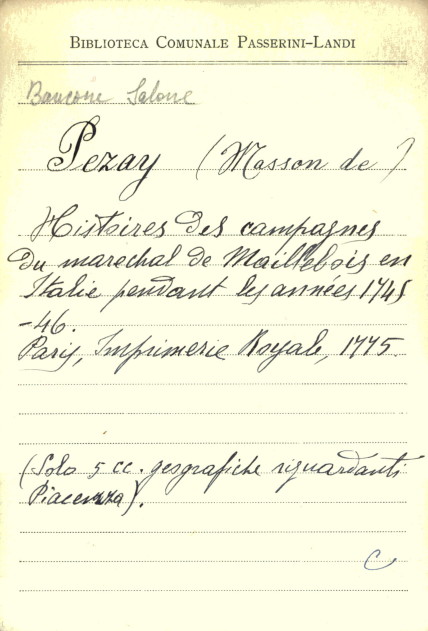 BIBLIOTECA COMUNALE PASSERINI-LANDI
Bancone Salone
Pezay (Masson de)
Histoires des campagnes
du marechal de Maillebois en
Italie pendant les années 1745
-46.
Paris, Imprimerie Royale, 1775.
(Solo 5 cc. geografiche riguardanti
Piacenza).
C